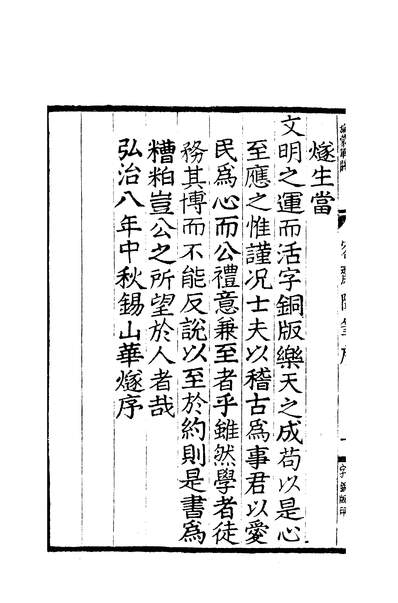 燧生當
文明之運而活字銅版樂天之成苟以是心
至應之惟謹况士夫以稽古為事君以愛
民為心而公禮意兼至者乎雖然學者徒
務其博而不能反說以至於約則是書為
糟粕豈公之所望於人者哉
弘治八年中秋錫山華燧序